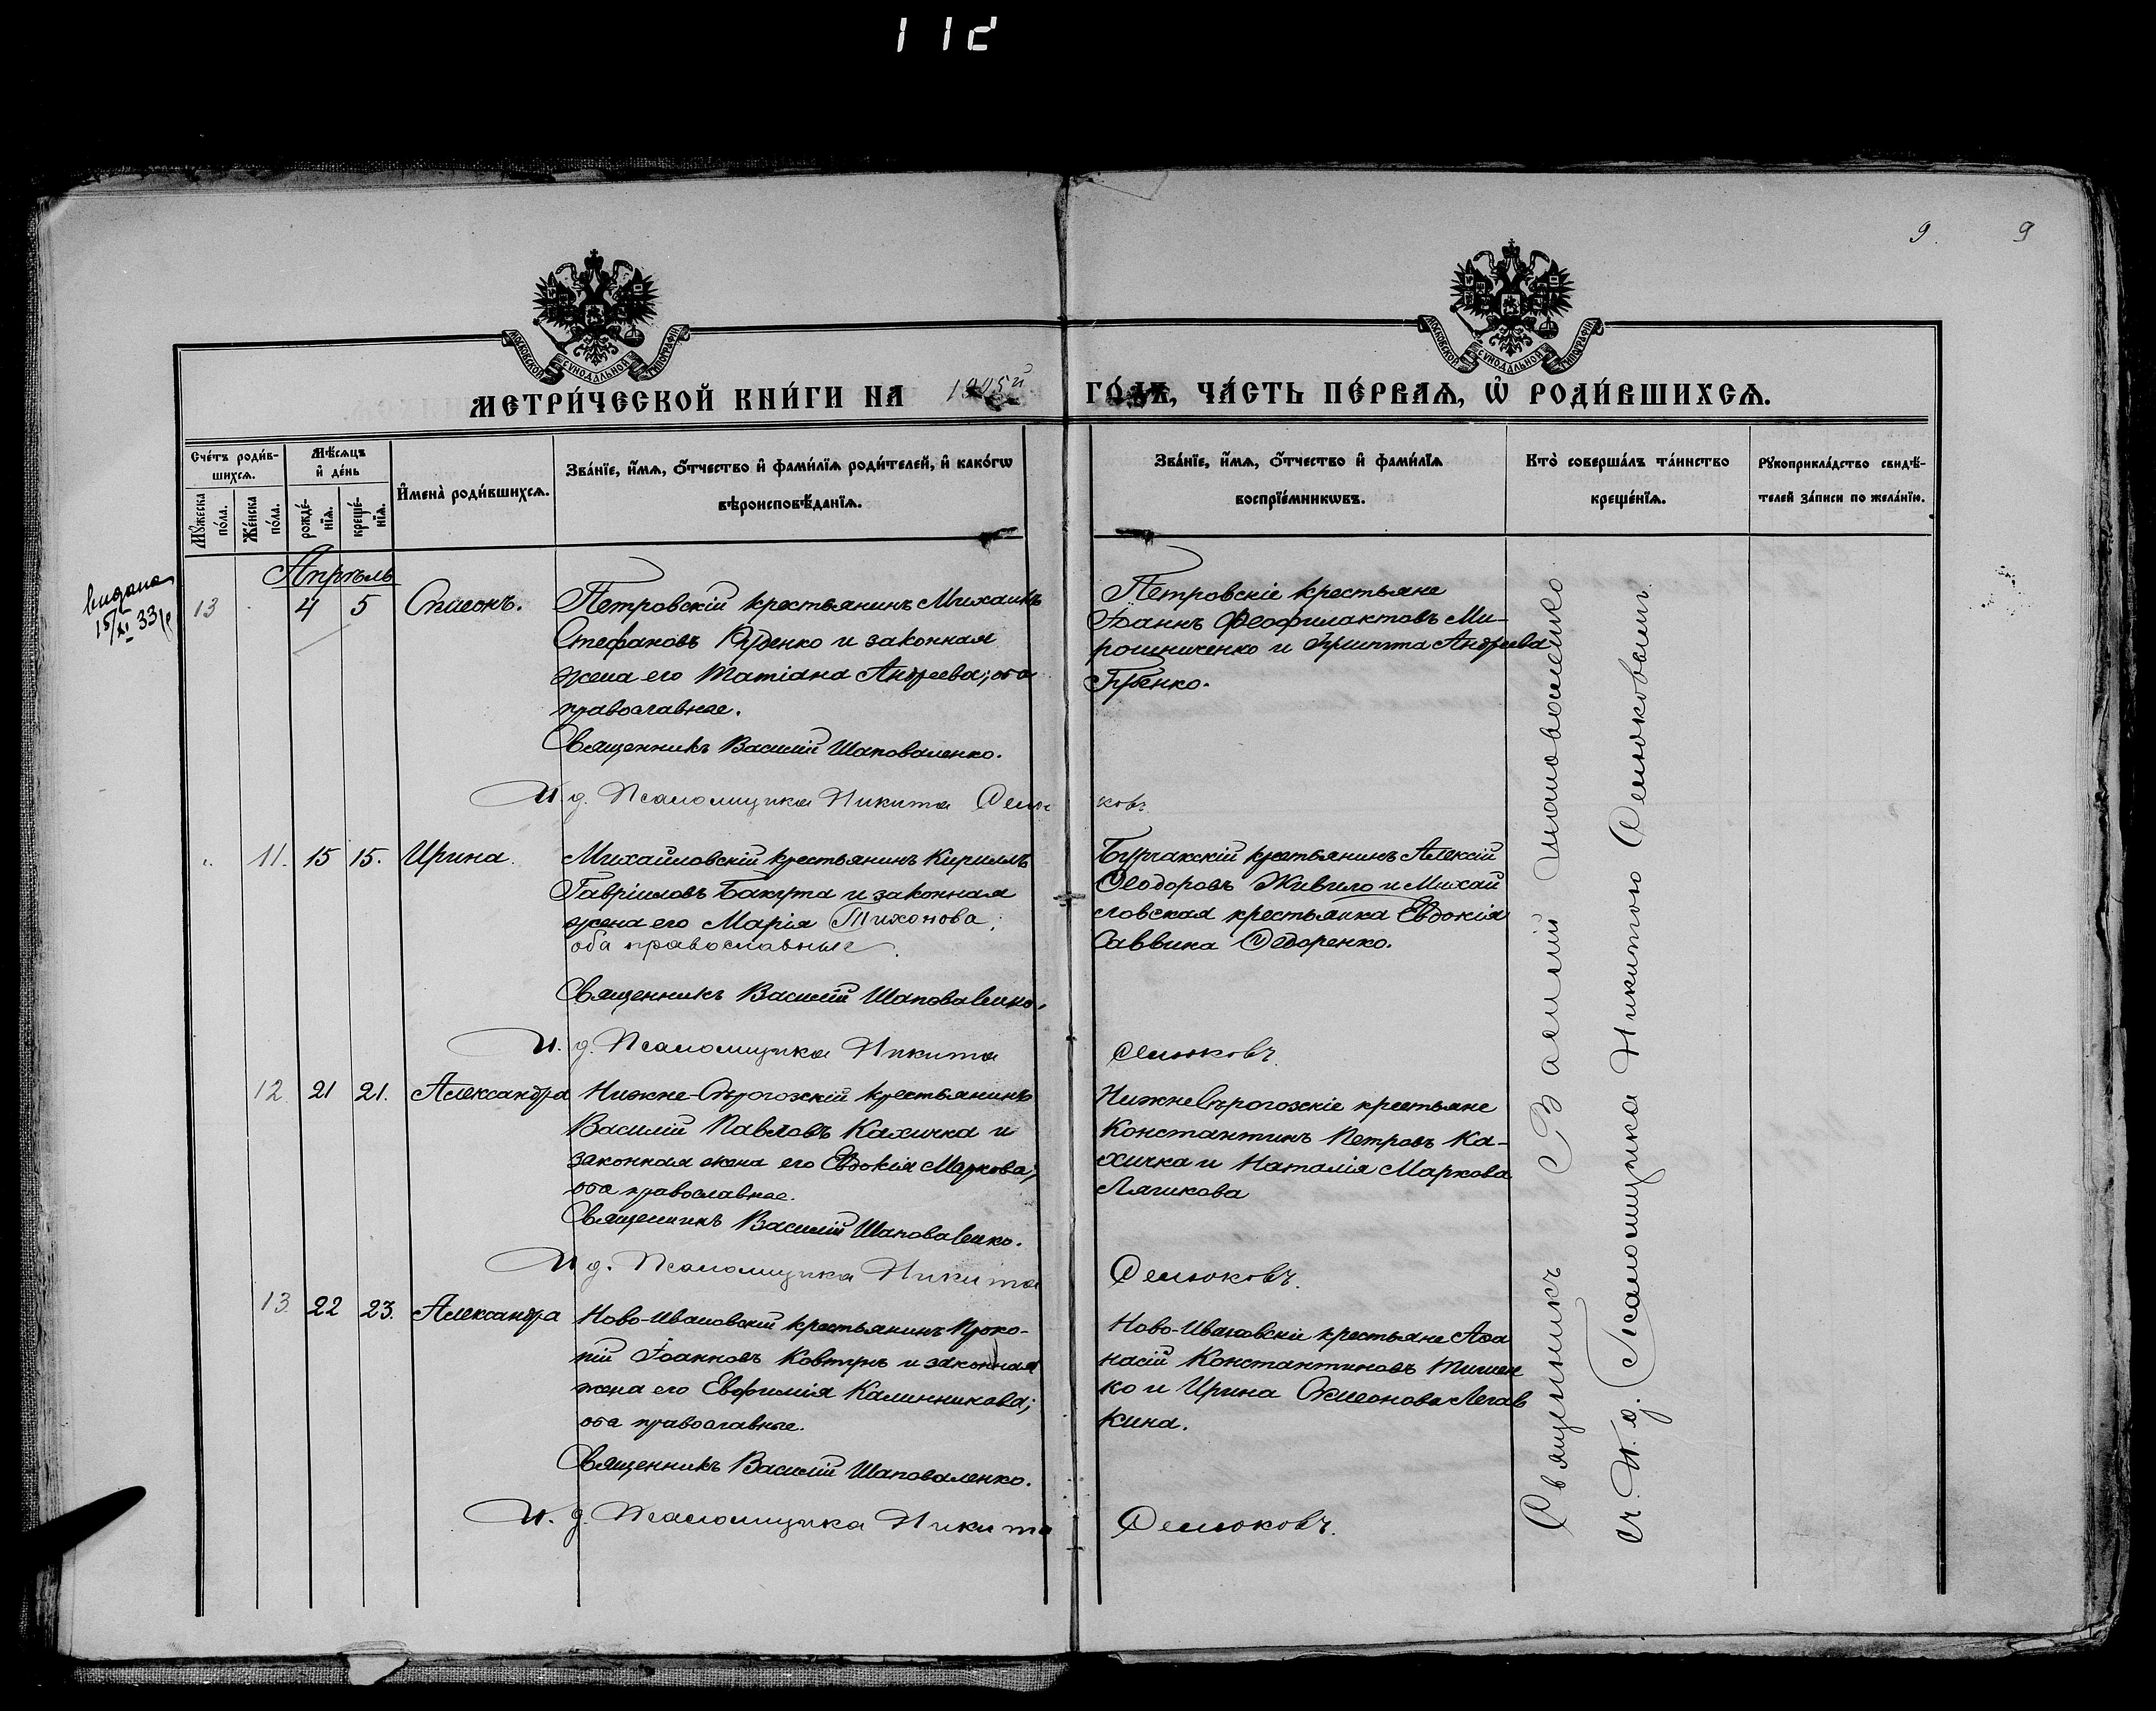 112
9.
9
МОСКОВСКОЙ СѴНОДАЛЬНОЙ ТИПОГРАФІИ
МОСКОВСКОЙ СѴНОДАЛЬНОЙ ТИПОГРАФІИ
МЕТРИ́ЧЕСКОЙ КНИ́ГИ НА 1905й ГО́ДЪ, ЧА́СТЬ ПЕ́РВАѦ, Ѡ҆ РОДИ́ВШИХСѦ.
Сче́тъ роди́в-
шихсѧ.
Мꙋ́жеска
по́ла.
Же́нска
по́ла.
Мѣ́сѧцъ
и҆ де́нь
рожде́-
нїѧ.
креще́-
нїѧ.
И҆мена̀ роди́вшихсѧ.
Зва́нїе, и҆́мѧ, ѻ҆́тчество и҆ фами́лїѧ роди́телей, и҆ како́гѡ
вѣроисповѣ́данїѧ.
Зва́нїе, и҆́мѧ, ѻ҆́тчество и҆ фами́лїѧ
воспрїе́мникѡвъ.
Кто̀ соверша́лъ та́инство
креще́нїѧ.
Рꙋкоприкла́дство свидѣ́-
телей за́писи по жела́нїю.
Апрѣль
видана
15/XI 33
13
4
5
Сѵмеонъ.
Петровскій крестьянинъ Михаилъ
Стефановъ Губенко и законная
жена его Татіана Андреева; оба
православные.
Священникъ Василій Шаповаленко.
И. д. Псаломщика Никита Семюковъ
Петровскіе крестьяне
Іоаннъ Феофилактовъ Ми-
рошниченко и Андреева
Губенко.
"
11.
15
15.
Ирина.
Михайловскій крестьянинъ Кириллъ
Гавріиловъ Бакута и законная
жена его Марія Тихонова;
оба православные.
Священникъ Василій Шаповаленко.
И. д. Псаломщика Никита Семюковъ
Бургакскій крестьянинъ Алексій
Ѳеодоровъ Живило и Михай
ловская крестьянка Евдокія
Саввина Ѳедоренко.
12.
21
21.
Александра
Нижне-Сѣрогозскій крестьянинъ
Василій Павловъ Кахичка и
законная жена его Евдокія Маркова;
оба православные.
Священникъ Василій Шаповаленко.
И. д. Псаломщика Никита Семюковъ.
НижнеСѣрогозскіе крестьяне
Константинъ Петровъ Ка-
хичка и Наталія Маркова
Лячикова
13.
22
23.
Александра
Ново-Ивановскій крестьянинъ Проко-
пій Іоанновъ Ковтунъ и законная
жена его Евфимія Калинникова;
оба православные.
Священникъ Василій Шаповаленко.
И. д. Псаломщика Никита Семюковъ.
Ново-Ивановскіе крестьяне Аѳа
насій Константиновъ Тишен
ко и Ирина Сѵмеонова Легав
кина.
Священникъ Василій Шаповаленко
съ И. д. Псаломщика Никитою Семюковымъ